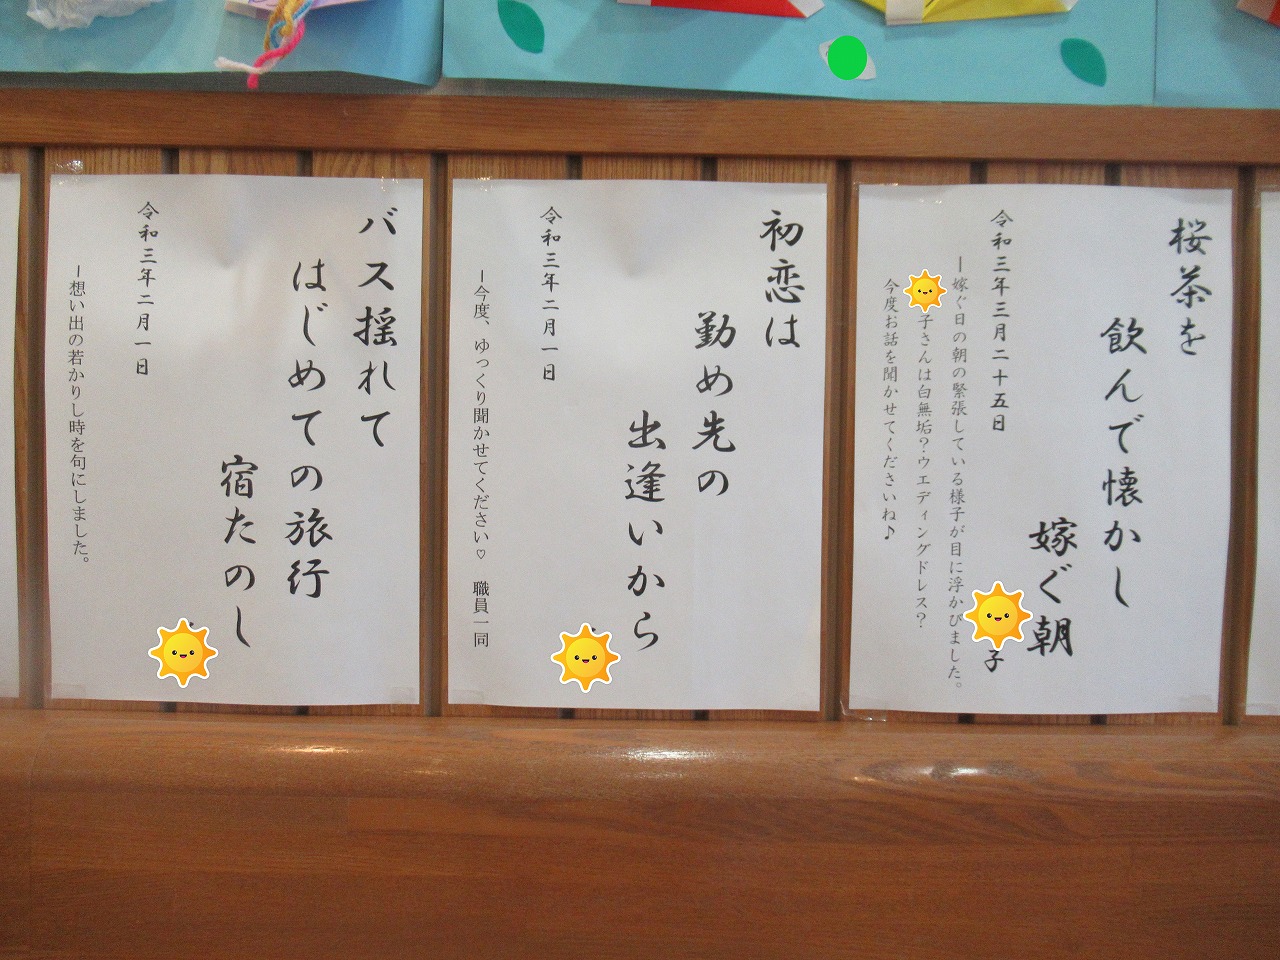 桜茶を
飲んで懐かし
嫁ぐ朝
子
令和三年三月二十五日
ー嫁ぐ日の朝の緊張している様子が目に浮かびました。
子さんは白無垢？ウエディングドレス？
今度お話を聞かせてくださいね♪
初恋は
勤め先の
出逢いから
令和三年二月一日
ー今度、ゆっくり聞かせてください♡ 職員一同
バス揺れて
はじめての旅行
宿たのし
令和三年二月一日
ー想い出の若かりし時を句にしました。